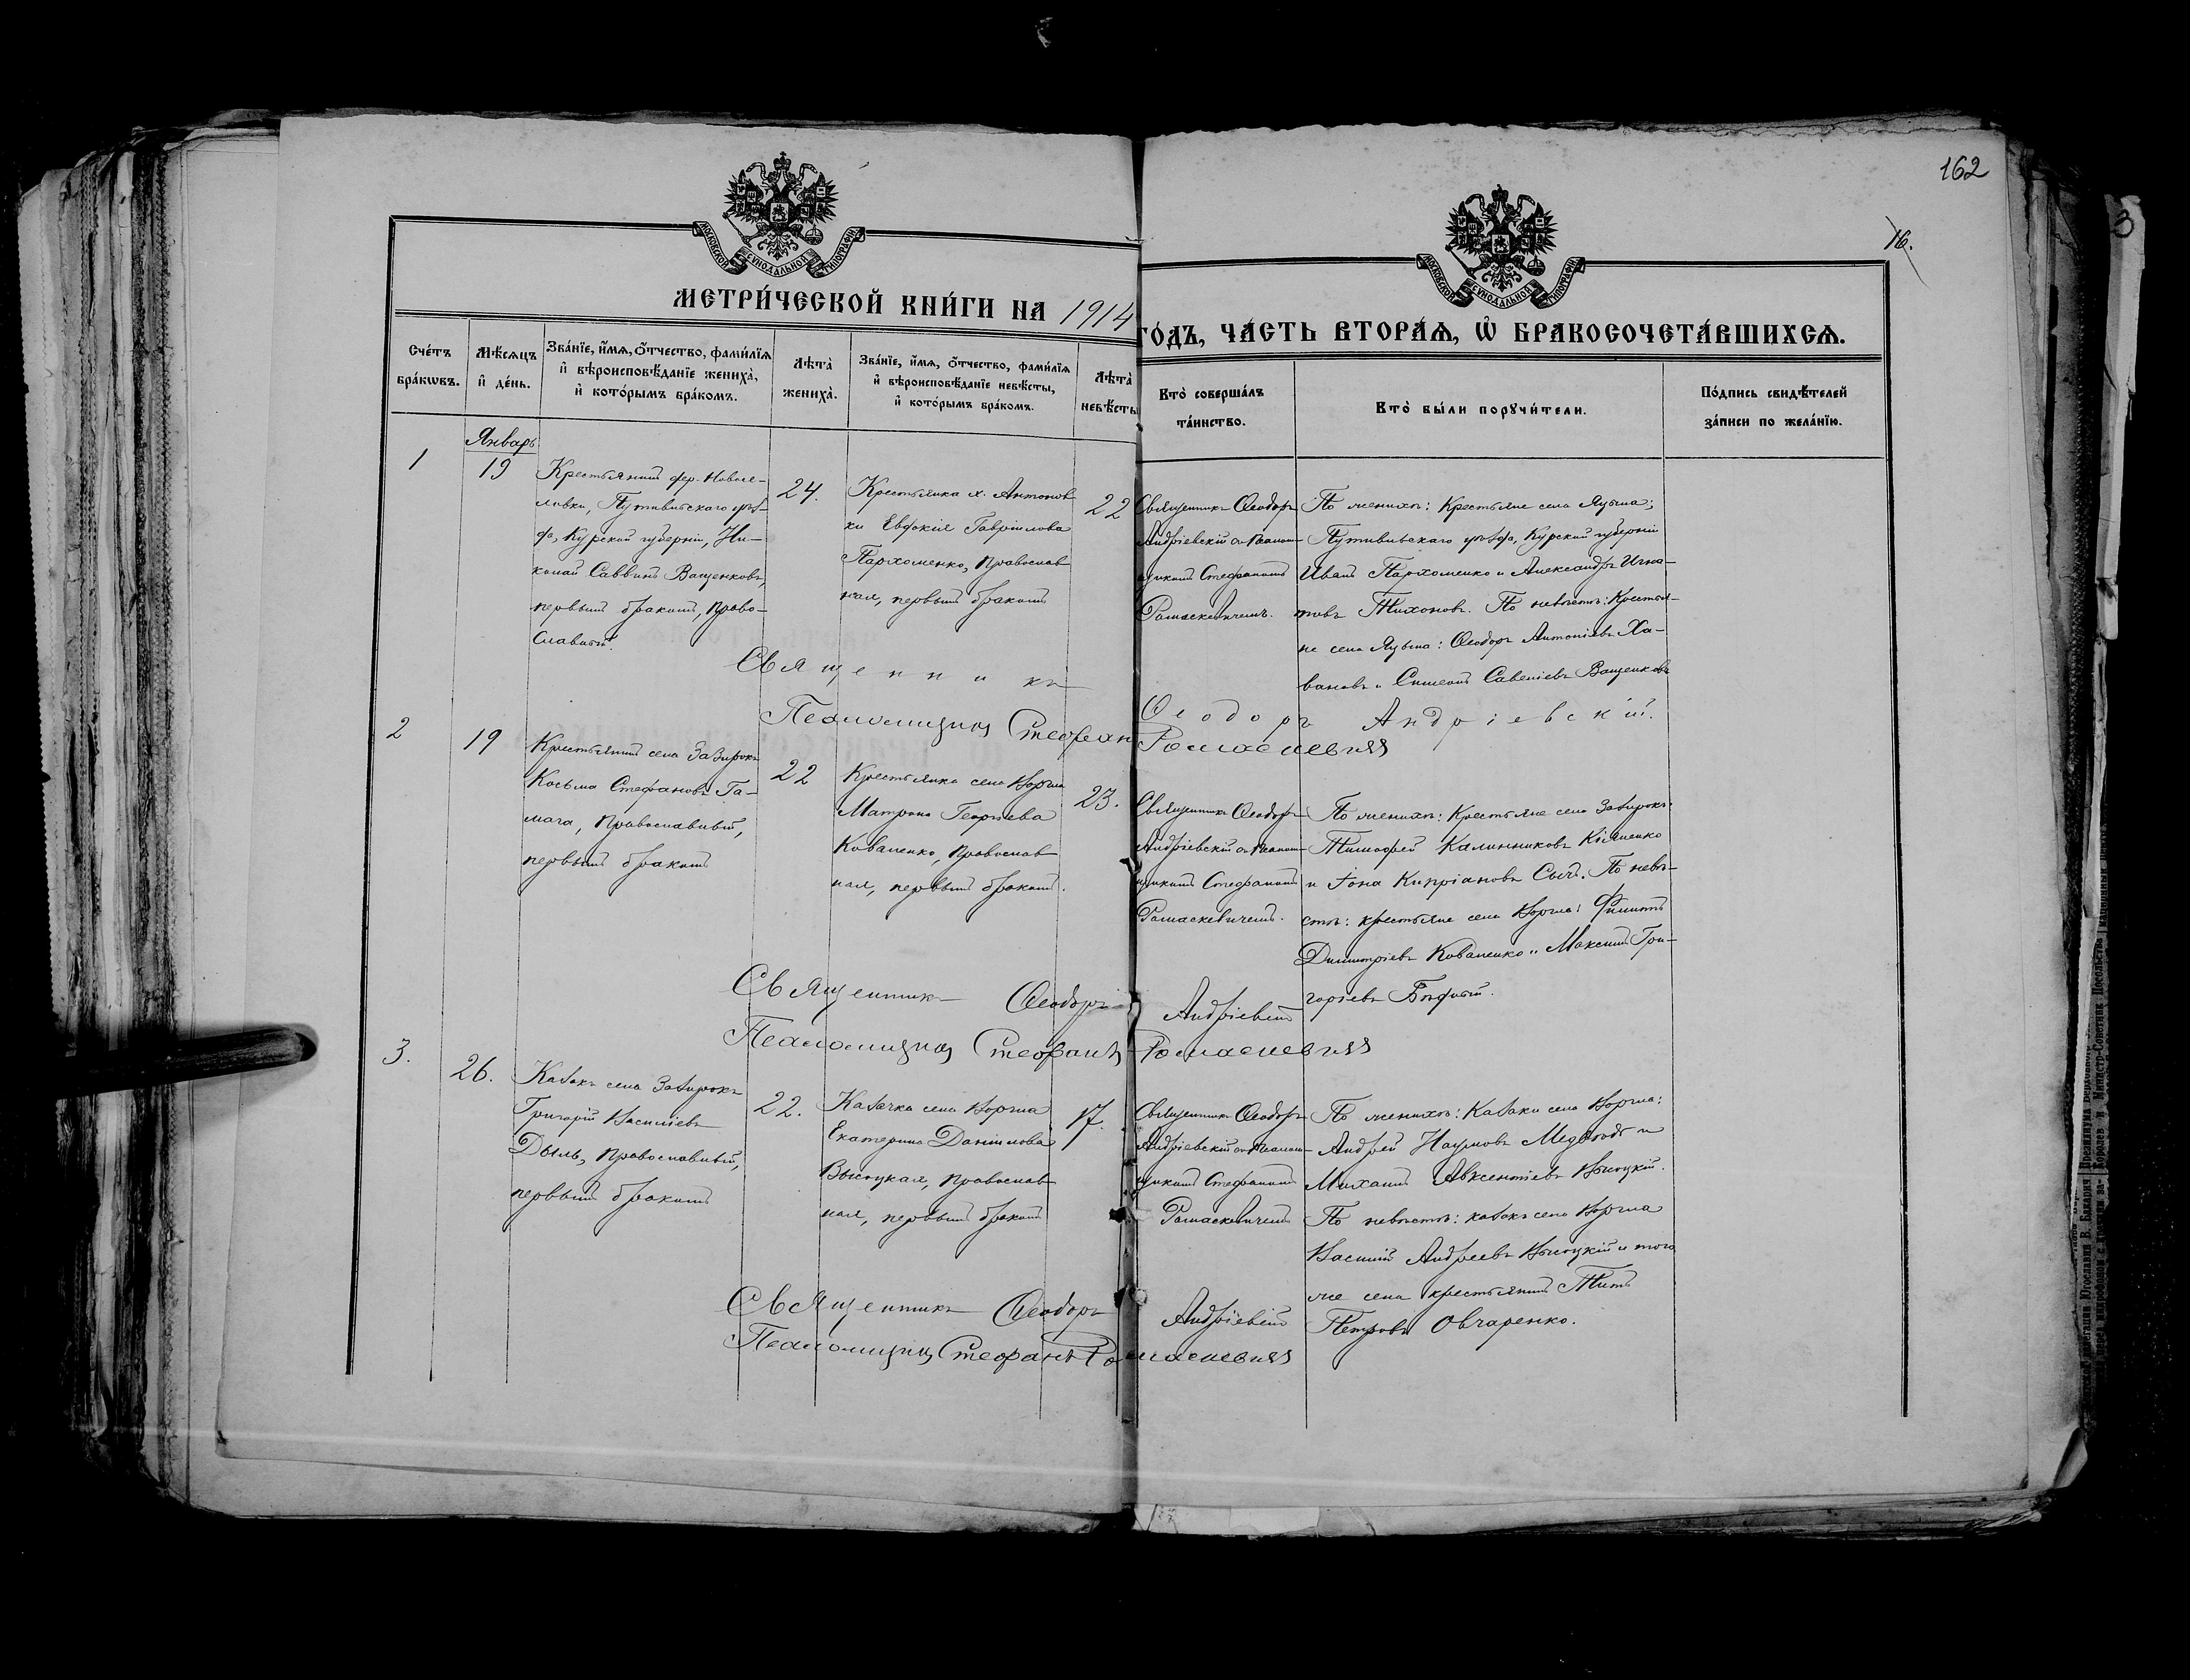 162
16.
МОСКОВСКОЙ СУНОДАЛЬНОЙ ТИПОГРАФІИ
МОСКОВСКОЙ СУНОДАЛЬНОЙ ТИПОГРАФІИ
МЕТРИ́ЧЕСКОЙ КНИ́ГИ НА 1914 ГО́ДЪ, ЧА́СТЬ ВТОРА́Ѧ, Ѡ҆ БРАКОСОЧЕТА́ВШИХСѦ.
Сче́тъ
бра́кѡвъ.
Мѣ́сѧцъ
и҆ де́нь.
Зва́нїе, и҆́мѧ, ѻ҆́тчество, фами́лїѧ
и҆ вѣроисповѣ́данїе жениха̀,
и҆ кото́рымъ бра́комъ.
Лѣта̀
жениха̀.
Зва́нїе, и҆́мѧ, ѻ҆́тчество, фами́лїѧ
и҆ вѣроисповѣ́данїе невѣ́сты,
и҆ кото́рымъ бра́комъ.
Лѣта̀
невѣ́сты
Кто̀ соверша́лъ
та́инство.
Кто̀ бы́ли порꙋчи́тели.
По́дпись свидѣ́телей
за́писи по жела́нїю.
Январь
1
19
Крестьянинъ дер. Новосе-
ловки, Путивльскаго уѣз-
да, Курской губерніи, Ни-
колай Саввинъ Ващенковъ,
первымъ бракомъ, право-
славный.
24.
Крестьянка х. Антонов
ки Евдокія Гавріилова
Пархоменко, православ
ная, первымъ бракомъ
22
Священникъ Ѳеодоръ
Андріевскій съ псалом-
щикомъ Стефаномъ
Ромаскевичемъ.
По женихѣ: Крестьяне села Языма;
Путивльскаго уѣзда, Курской губерніи
Иванъ Пархоменко и Александръ Игна-
товъ Тихоновъ. По невѣстѣ: Крестья-
не села Языма: Ѳеодоръ Антоніевъ Ха-
вановъ и Симеонъ Савеліевъ Ващенковъ
Священникъ Ѳеодоръ Андріевскій.
Псаломщикъ Стефанъ Ромаскевичъ
2
19
Крестьянинъ села Зазирокъ
Косьма Стефановъ Га-
мага, православный,
первымъ бракомъ
22
Крестьянка села Воргла
Матрона Георгіева
Коваленко, православ
ная, первымъ бракомъ.
23.
Священникъ Ѳеодоръ
Андріевскій съ псалом-
щикомъ Стефаномъ
Ромаскевичемъ.
По женихѣ: Крестьяне села Зазирокъ:
Тимофей Калинниковъ Кіяшенко
и Іона Кипріановъ Сычъ. По невѣ-
стѣ: крестьяне села Воргла: Филиппъ
Димитріевъ Коваленко и Максимъ Гри-
горіевъ Бѣдный.
Священникъ Ѳеодоръ Андріевскій
Псаломщикъ Стефанъ Ромаскевичъ
3.
26.
Казакъ села Зазирокъ
Григорій Василіевъ
Дыль, православный,
первымъ бракомъ
22.
Казачка села Воргла
Екатерина Даніилова
Высоцкая, православ
ная, первымъ бракомъ
17.
Священникъ Ѳеодоръ
Андріевскій съ псалом-
щикомъ Стефаномъ
Ромаскевичемъ
По женихѣ: Казаки села Воргла:
Андрей Наумовъ Медвѣдь и
Михаилъ Авксентіевъ Высоцкій.
По невѣстѣ: казакъ села Воргла
Василій Андреевъ Высоцкій и того
же села крестьянинъ Титъ
Петровъ Овчаренко.
Священникъ Ѳеодоръ Андріевскій
Псаломщикъ Стефанъ Ромаскевичъ